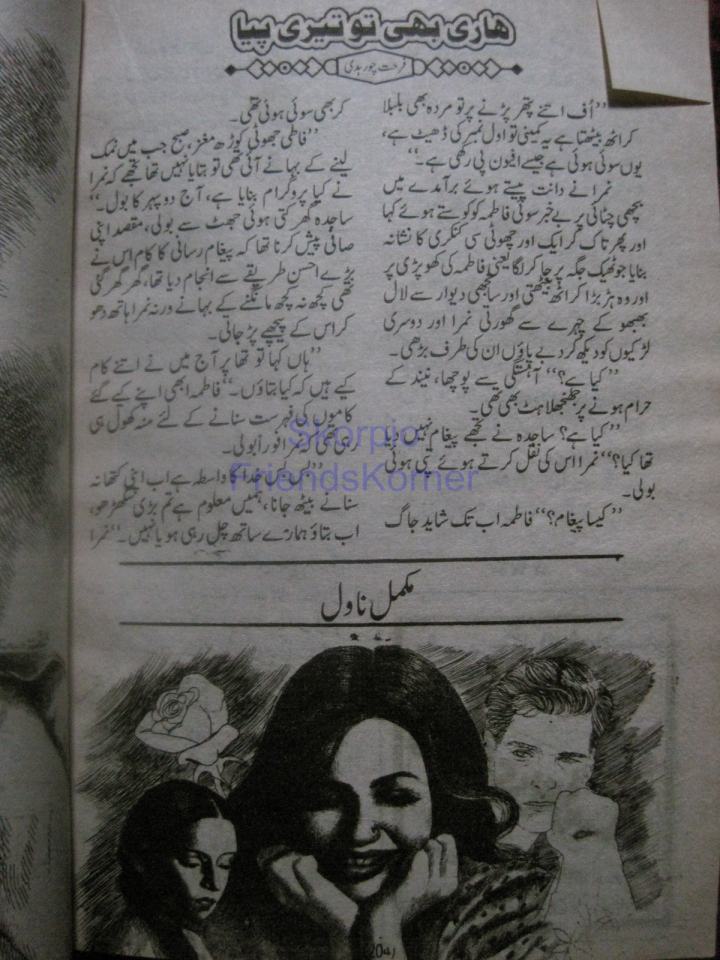 ھاری بھی تو تیری پیا
فرحت چوہدری
’’اُف اتنے پتھر پڑنے پر تو مردہ بھی بلبلا
کر اٹھ بیٹھتا ہے یہ کمینی تو اول نمبر کی ڈھیٹ ہے،
یوں سوئی ہوئی ہے جیسے افیون پی رکھی ہے۔‘‘
نمرا نے دانت پیستے ہوئے برآمدے میں
بچھی چٹائی پر بے خبر سوئی فاطمہ کو کوستے ہوئے کہا
اور پھر تاک کر ایک اور چھوٹی سی کنکری کا نشانہ
بنایا جو ٹھیک جگہ پر جا کر لگا یعنی فاطمہ کی کھوپڑی پر
اور وہ ہڑبڑا کر اٹھ بیٹھی اور سانجھی دیوار سے لال
بھبھو کے چہرے سے گھورتی نمرا اور دوسری
لڑکیوں کو دیکھ کر دبے پاؤں ان کی طرف بڑھی۔
’’کیا ہے؟‘‘ آہستگی سے پوچھا، نیند کے
حرام ہونے پر جھنجھلاہٹ بھی تھی۔
’’کیا ہے؟ ساجدہ نے تجھے پیغام نہیں دیا
تھا کیا؟‘‘ نمرا اس کی نقل کرتے ہوئے پسی ہوئی
بولی۔
’’کیسا پیغام؟‘‘ فاطمہ اب تک شاید جاگ
کر بھی سوئی ہوئی تھی۔
’’فاطی جھوٹی کوڑھ مغز، صبح جب میں نمک
لینے کے بہانے آئی تھی تو بتایا نہیں تھا تجھے کہ نمرا
نے کیا پروگرام بنایا ہے، آج دوپہر کا بول۔‘‘
ساجدہ گھرکتی ہوئی جھٹ سے بولی، مقصد اپنی
صفائی پیش کرنا تھا کہ پیغام رسانی کا کام اس نے
بڑے احسن طریقے سے انجام دیا تھا، گھر گھر گئی
تھی کچھ نہ کچھ مانگنے کے بہانے ورنہ نمرا ہاتھ دھو
کر اس کے پیچھے پڑ جاتی۔
’’ہاں کہا تو تھا پر آج میں نے اتنے کام
کیے ہیں کہ کیا بتاؤں۔‘‘ فاطمہ ابھی اپنے کیے گئے
کاموں کی فہرست سنانے کے لئے منہ کھول ہی
رہی تھی کہ نمرا فوراً بولی۔
’’بس بس خدا کا واسطہ ہے اب اپنی کتھا نہ
سنانے بیٹھ جانا، ہمیں معلوم ہے تم بڑی سگھڑ ہو،
اب بتاؤ ہمارے ساتھ چل رہی ہو یا نہیں۔‘‘ نمرا
Skorpio
FriendsKorner
مکمل ناول